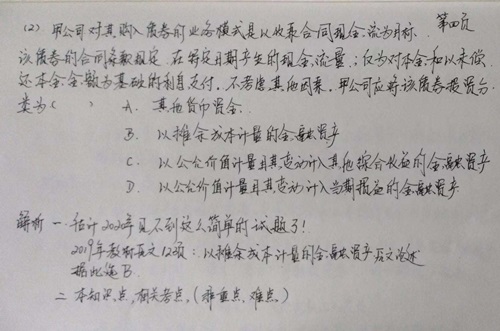 (2) 甲公司对其购入债券的业务模式是以收取合同现金流为目标. 第四页
该债券的合同条款规定,在特定日期产生的现金流量;仅为对本金和以未偿
还本金金额为基础的利息支付,不考虑其他因素,甲公司应将该债券投资分
类为( ) A. 其他货币资金.
B. 以摊余成本计量的金融资产
C. 以公允价值计量且其变动计入其他综合收益的金融资产
D. 以公允价值计量且其变动计入当期损益的金融资产
解析 一 估计2020年见不到这么简单的试题了!
2019年教材原文12项:以摊余成本计量的金融资产 后文论述
据此选B.
二 本知识点,相关考点,(难重点,难点.)